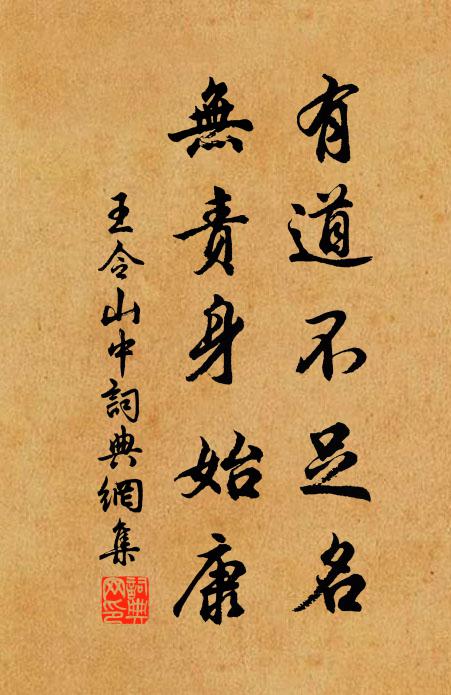 有道不足名
無責身始康
王令山中詞典網集
詞典
网印